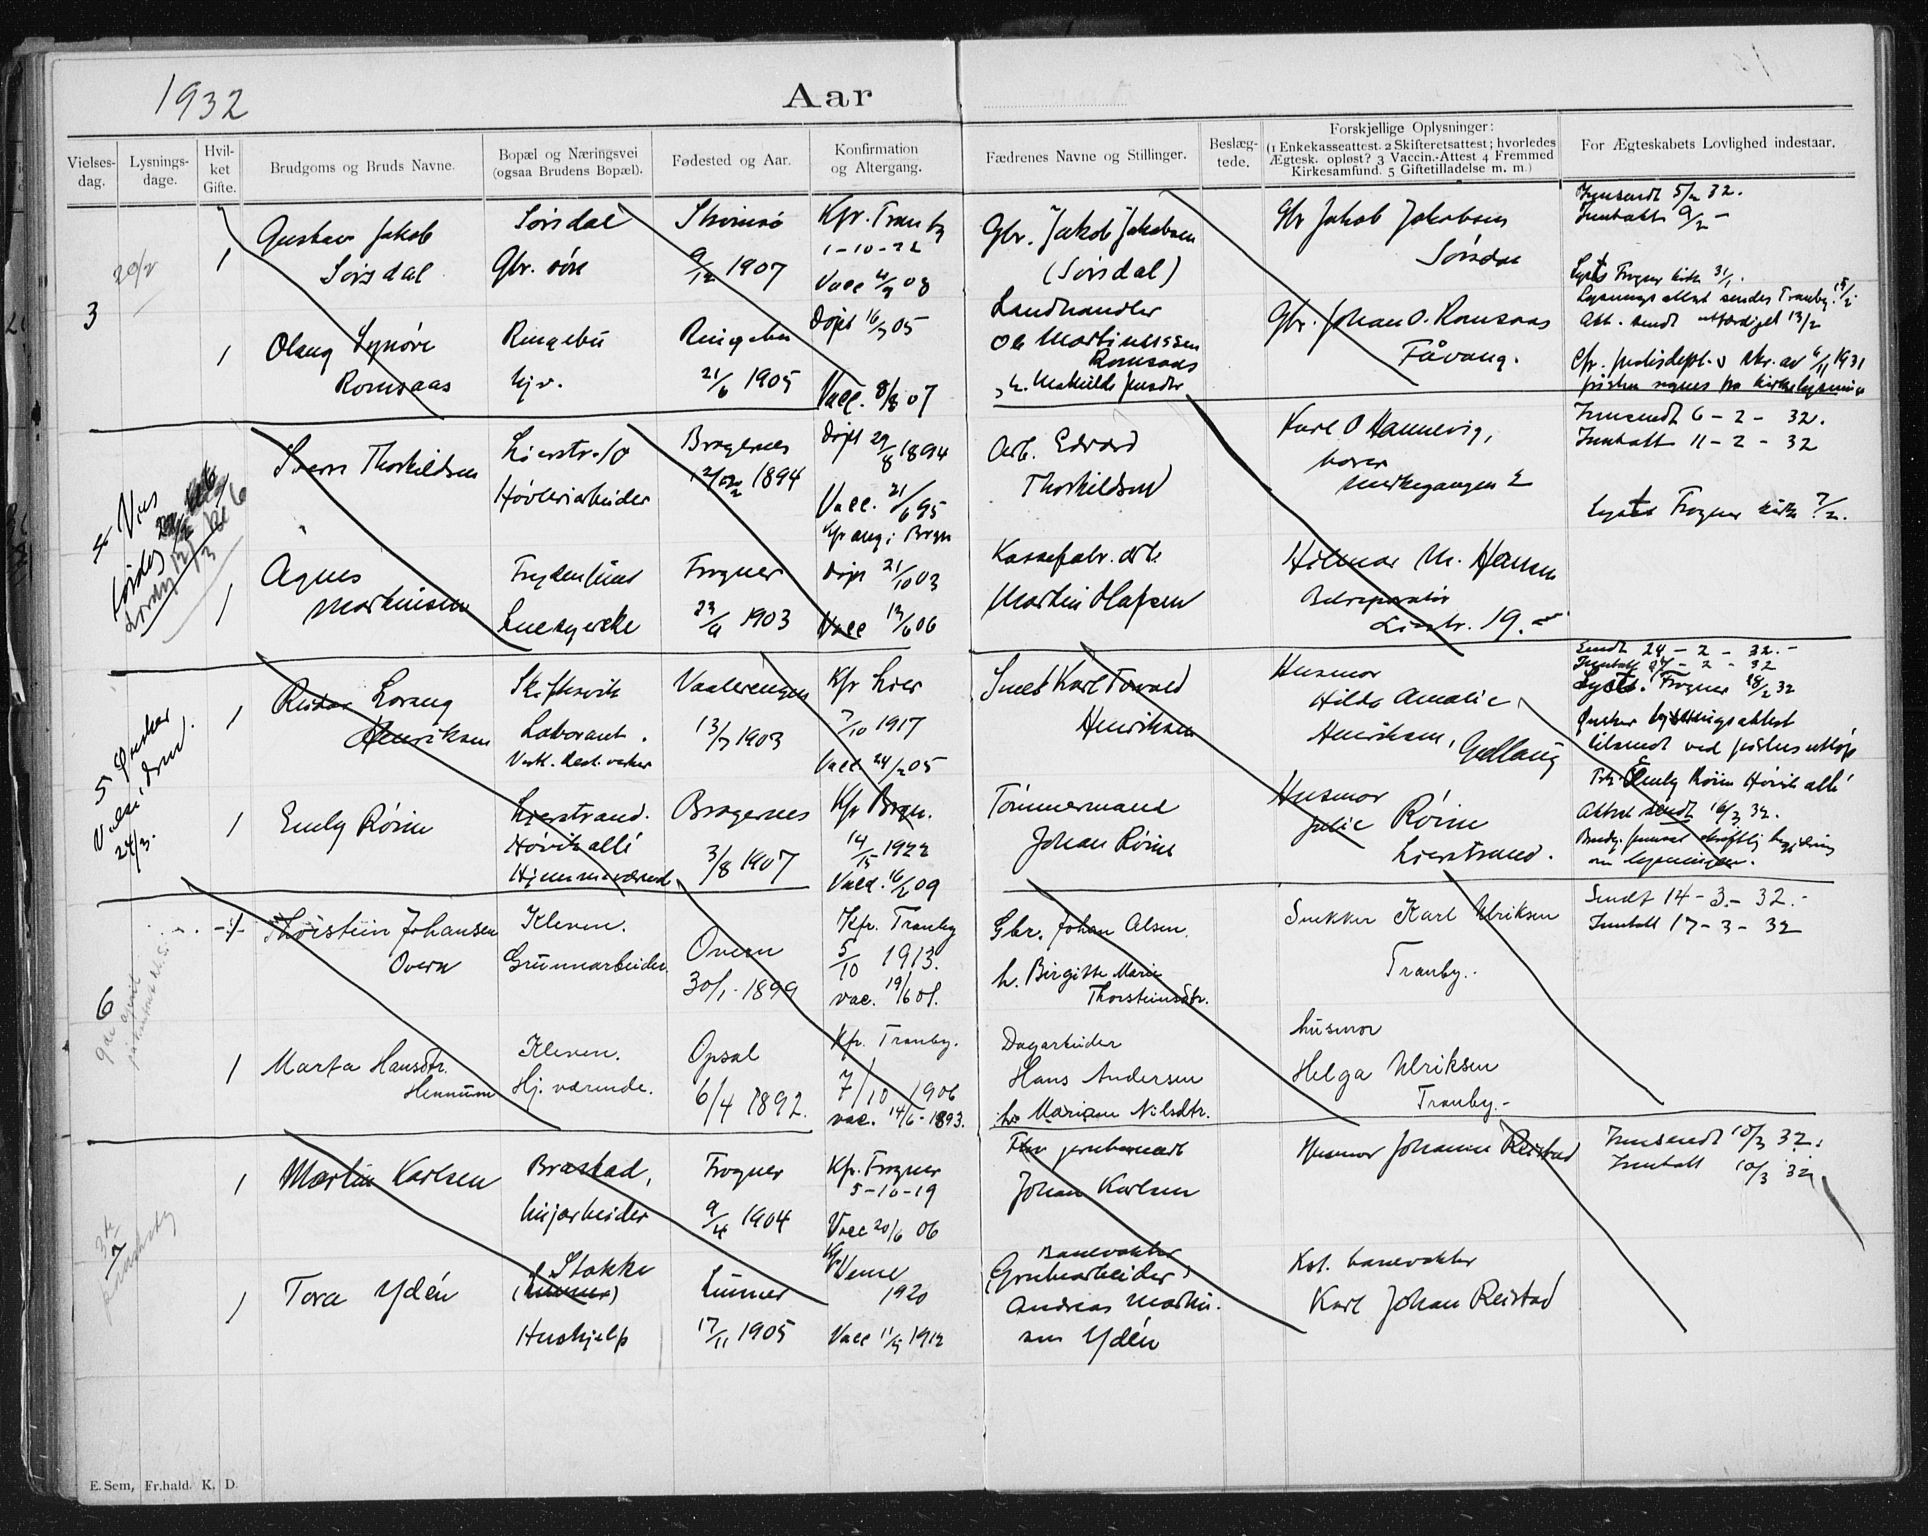 1932
Aar
Vielses-dag.
Lysnings-dage.
Hvil-ket Gifte.
Brudgoms og Bruds Navne.
Bopæl og Næringsvei (ogsaa Brudens Bopæl).
Fødested og Aar.
Konfirmation og Altergang.
Fædrenes Navne og Stillinger.
Beslæg-tede.
Forskjellige Oplysninger:
(1 Enkekasseattest. 2 Skifteretsattest; hvorledes
Ægtesk. opløst? 3 Vaccin.-Attest 4 Fremmed
Kirkesamfund. 5 Giftetilladelse m. m.)
For Ægteskabets Lovlighed indestaar.
3
20/2
1
Gustav Jakob
Sørsdal
Sørsdal
Gbr. søn
Strømsø
9/12 1907
Kfr. Tranby
1-10-22
Vacc 4/7 08
Gbr. Jakob Jakobsen
(Sørsdal)
Gbr Jakob Jakobsen
Sørsdal
Innsendt 5/2 32.
Inntatt 9/2 -
Lyst Frogner kirke 31/1.
1
Olaug Synøve
Romsaas
Ringebu
hjv.
Ringebu
21/6 1905
Døpt 16/7 05
Vacc. 8/8 07
Landhandler
Ole Martinussen
Romsaas
Gbr. Johan O. Romsaas
Fåvang.
Lysningsattest sendes Tranby 15/2
Att. sendt utferdiget 13/2
Cfr. justisdept.s skr. av 6/11 1931
4 Vies
lørdag
Lørdag 12/3 kl 6
Sverre Thorkildsen
Lierstr. 10
Høvleriarbeider
Bragernes
1894
Døpt 29/8 1894
Vacc. 21/6 95
Kfr ang: Bragn
Arb. Edvard
Thorkildsen
Karl O Hannevig,
Innsendt 6 - 2 - 32.
Inntatt 11 - 2 - 32
Lyst Frogner kirke 7/2.
1
Agnes
Martinsen
Frydenlund
Luesyerske
Frogner
23/9 1903
Døpt 21/10 03
Vacc 13/6 06
Kassefabr. arb.
Martin Olafsen
Hilmar M. Hansen
Bilreparatør
Lierstr. 19.
5 Ønsker
Vielse i dom.
24/3.
1
Reidar Lorang
Henriksen
Skiftesvik
Laborant.
Vaalerengen
13/7 1903
Kfr Lier
7/10 1917
Vacc 24/2 05
Smed Karl Torvald
Henriksen
Husmor
Hilda Amalie
Henriksen, Gullaug
Sendt 24 - 2 - 32.-
Inntatt 24 - 2 - 32
Lyst. Frogner 28/2 32
Ønsker lysningsattest
tilsendt ved fristens utløp
1
Emly Röine
Lierstrand.
Høvik allé
Hjemmeværende
Bragernes
3/8 1907
Kfr Bragn.
1922
Vacc. 16/2 09
Tømmermand
Johan Röine
Husmor
Julie Röine
Lierstrand.
Frk. Emly Röine Høvik allé
Attest sendt 16/3 32.
6
Thorstein Johansen
Overn
Kleven.
Grunnarbeider.
Overn
30/1 - 1899
Kfr. Tranby
5/10 1913.
vac. 19/6 01.
Gbr. Johan Olsen.
h. Birgitte Marie
Thorsteinsdtr.
Snekker Karl Ulriksen
Tranby.
Sendt 14 - 3 - 32.-
Inntatt 17 - 3 - 32
1
Marta Hansdtr.
Hennum
Kleven.
Hj. værende.
Opsal
6/4 1892.
Kfr. Tranby.
7/10 1906
vac. 14/6 - 1893.
Dagarbeider
Hans Andersen
h. Mariane Nilsdtr.
husmor
Helga Ulriksen
Tranby.-
1
Martin Karlsen
Brastad,
linjearbeider
Frogner
9/4 1904
Kfr. Frogner
5-10-19
Vacc 20/6 06
Johan Karlsen
Husmor Johanne Reistad
Innsendt 10/3 32.
Inntatt 10/3 32
1
Tora Ydén
Stokke
(Lunner)
Huskjelp
Lunner
17/11 1905
1920
Vacc 1912
Banevokter
(Grubearbeider)
Andreas Martin-
sen Ydén
Kst. banevokter
Karl Johan Reistad
E. Sem, Fr.hald. K. D.